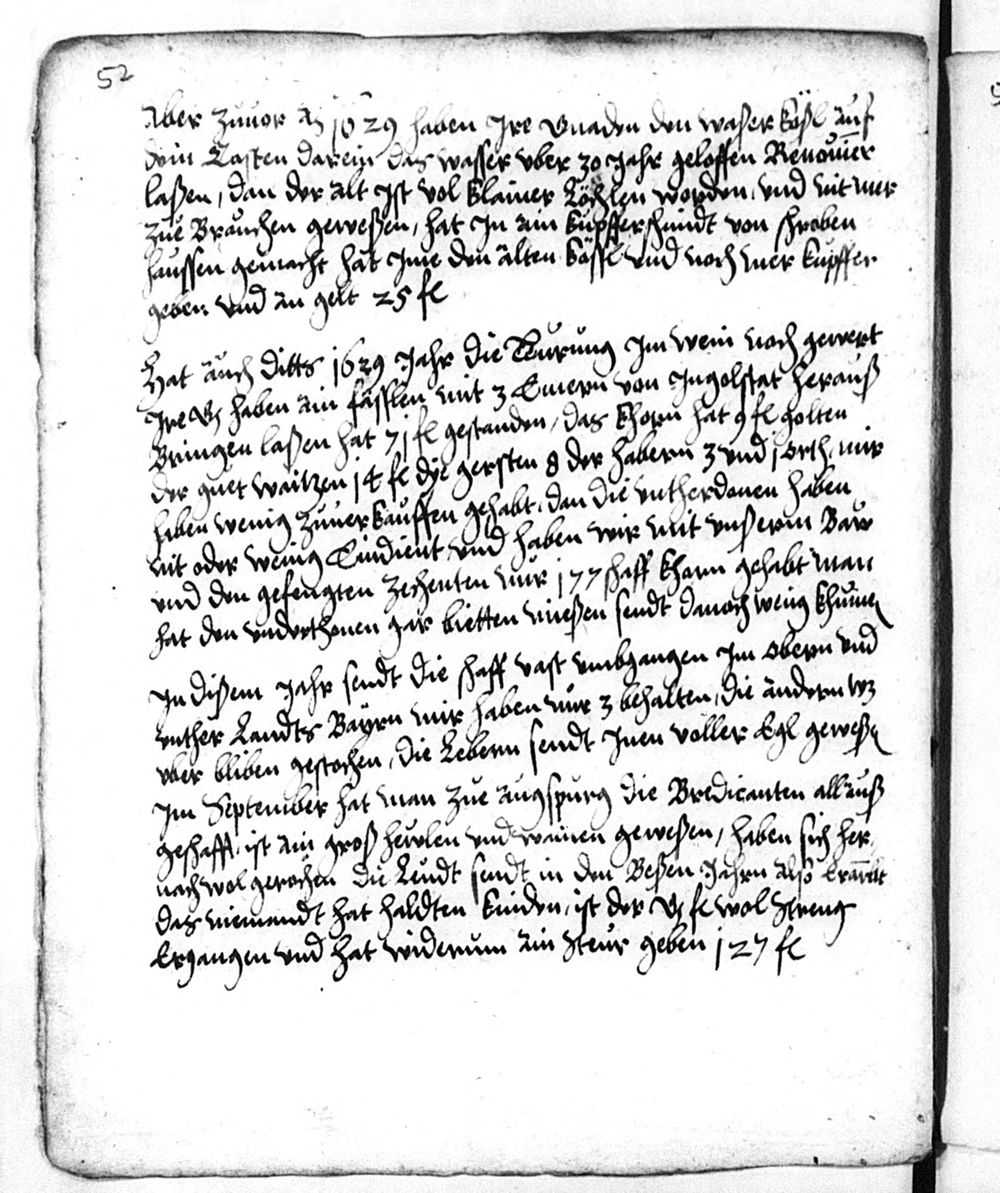 52
Aber Zuuor Aō 1629 haben Ire Gnaden den waßer käßl auf
dem Casten darein das wasser vber 30 Jahr geloffen Renouiern
laßen, dan der alt Ist vol klainer Löchlen worden, vnd nit mer
Zue Brauchen geweßen, hat In ain kupfferschmidt von schroben
haussen gemacht hat Ime den alten kässl vnd noch mer kupffer
geben vnd an gelt 25 fl
Hat auch ditts 1629 Jahr die Teurung Im wein noch gewert
Ire G haben ain fässlen mit 3 Emern von Ingolstat herauß
Bringen laßen hat 71 fl gestanden, das khorn hat 9 fl golten
der guet waitzen 14 fl die gersten 8 der habern 3 vnd 1 orth, mir
haben wenig Zuuerkauffen gehabt, dan die vntherdonen haben
nit oder wenig Eindient vnd haben wir mit vnßerm Baw
vnd den gefengten Zechenten nur 177 schaff khorn gehabt man
hat den vnderthonen gar bietten mießen sendt danoch wenig khumen
In dißem Jahr sendt die schaff vast vmbgangen Im obern vnd
vnther Landts Bayrn mir haben nur 3 behalten, die andern wz
vber bliben gestochen, die Lebern sendt Inen voller Egl geweßen
Im September hat man Zue Augspurg die Bredicanten all auß
geschafft, ist ain groß heulen vnd wainen geweßen, haben sich her
nach wol gerochen die Leudt sendt in den Beßen Jahrn also
das niemandt hat haldten kinden, ist der G fl wol streng
Ergangen vnd hat widerum ain steur geben 127 fl